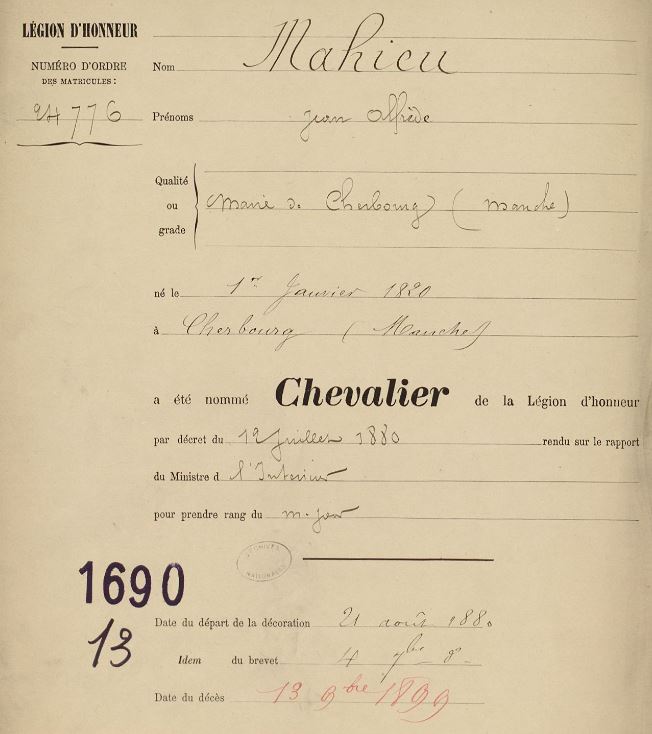 LÉGION D'HONNEUR
NUMÉRO D'ORDRE
DES MATRICULES :
24776
Nom Mahieu
Prénoms Jean Alfrède
Qualité
ou
grade
Maire de Cherbourg (Manche)
né le 1er Janvier 1820
à Cherbourg (Manche)
a été nommé Chevalier de la Légion d'honneur
par décret du 12 Juillet 1880 rendu sur le rapport
du Ministre d l'Interieur
pour prendre rang du m. jour
ARCHIVES
NATIONALES
1690
13
Date du départ de la décoration 21 août 1880
Idem du brevet 4 7bre 8
Date du décès 13 9bre 1899